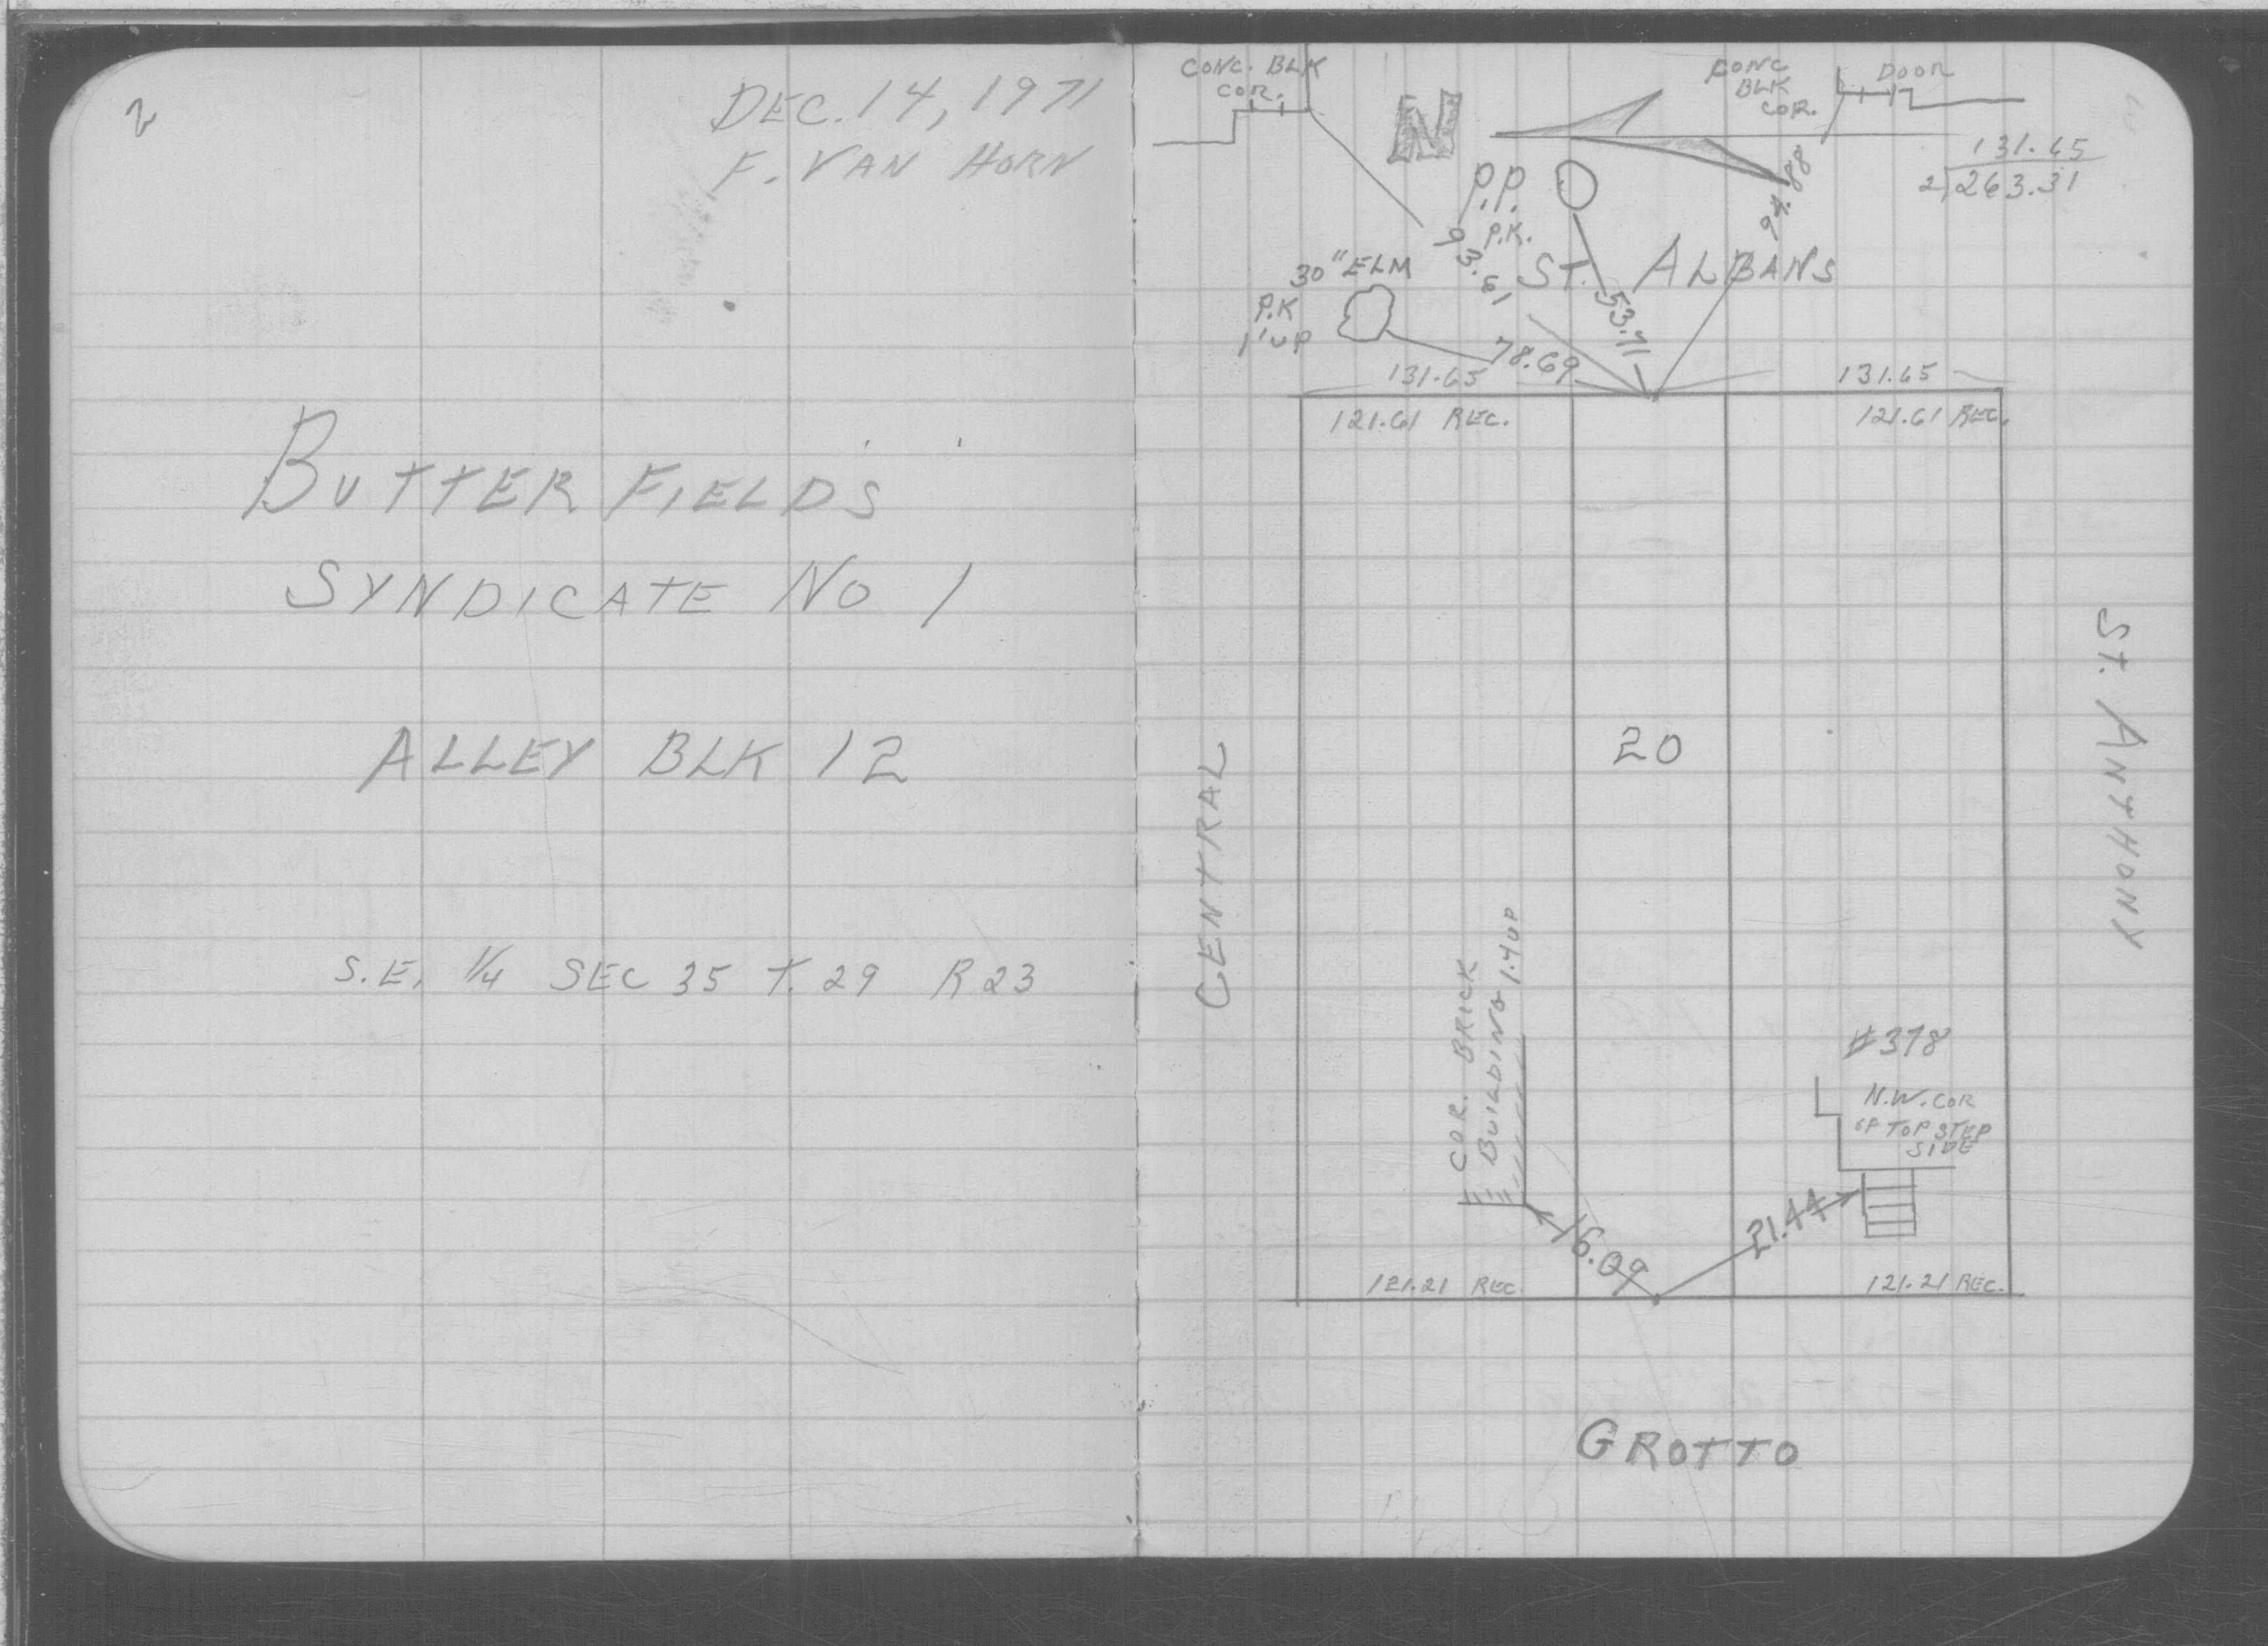 2
DEC. 14, 1971
F. VAN HORN
BUTTERFIELDS
SYNDICATE NO 1
ALLEY BLK 12
S.E. 1/4 SEC 35 T. 29 R 23
CONC. BLK
COR.
N
CONC
BLK
COR.
DOOR
131.65
2)263.31
P.P.
P.K.
94.88
93.61
ST. ALBANS
30" ELM
P.K
1' UP
53.71
78.69
131.65
131.65
121.61 REC.
121.61 REC.
20
CENTRAL
ST. ANTHONY
COR. BRICK
BUILDING 1.4 UP
#378
N.W. COR
OF TOP STEP
SIDE
16.09
21.44
121.21 REC.
121.21 REC.
GROTTO